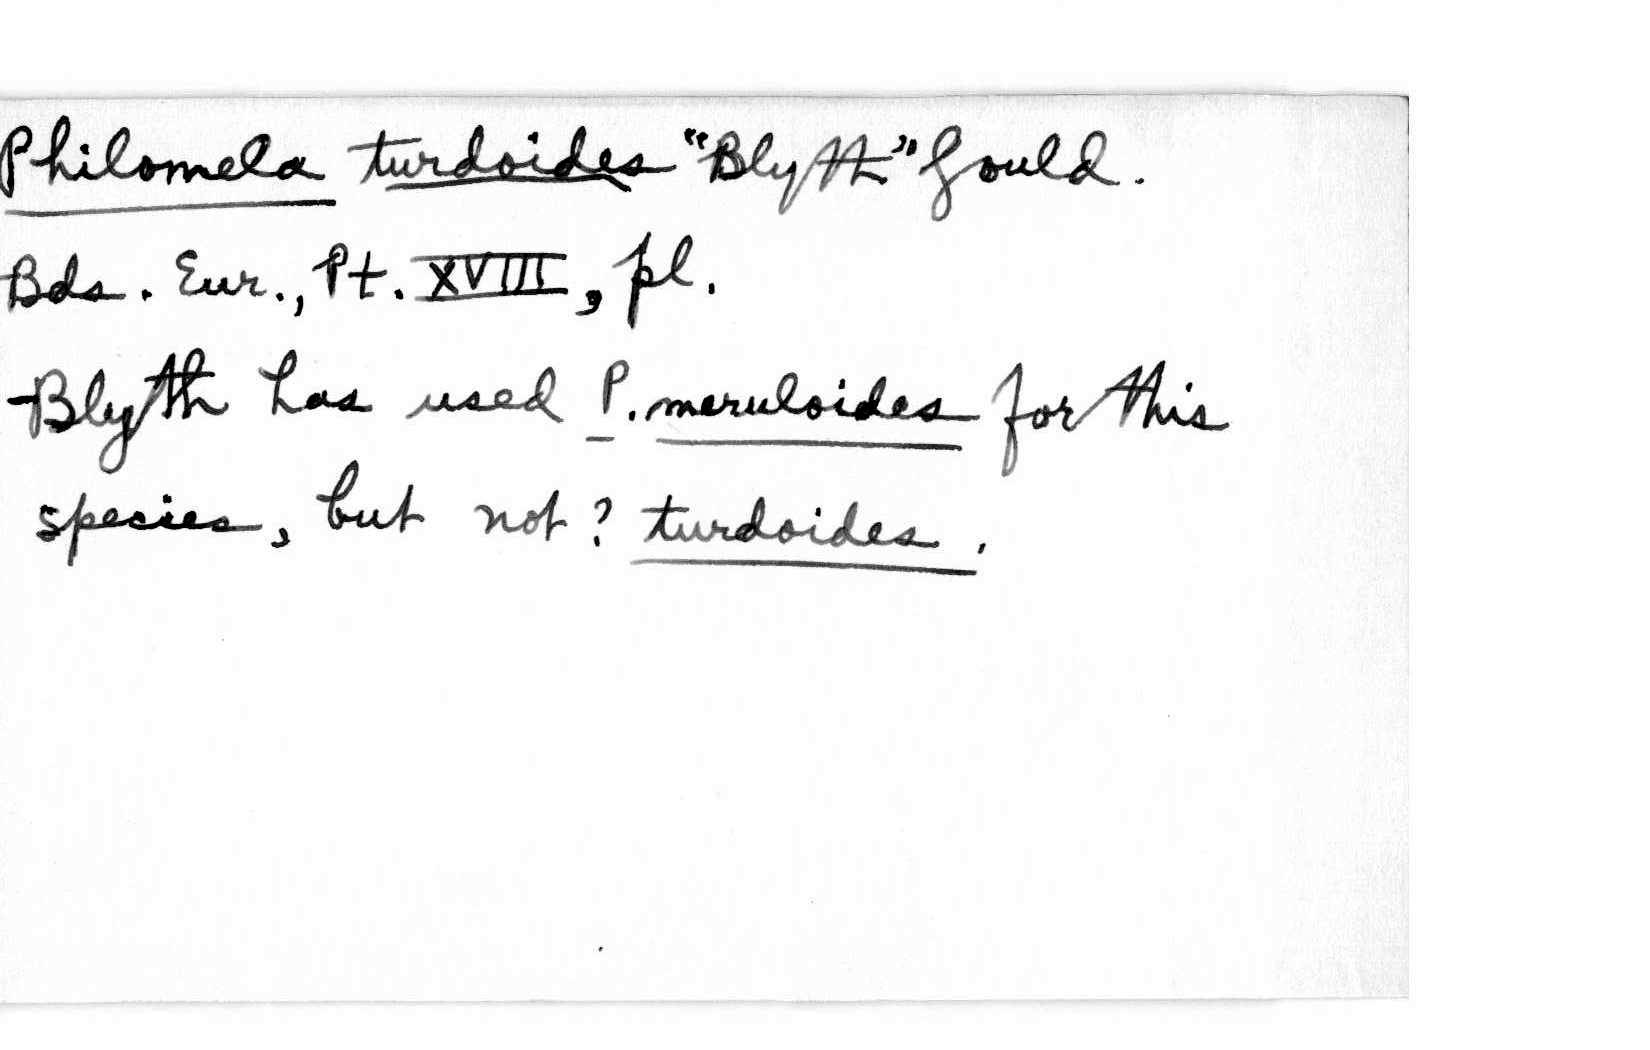 Philomela turdoides "Blyth" Gould.
Bds. Eur., Pt. XVIII, pl.
-Blyth has used P. meruloides for this
species, but not? turdoides.